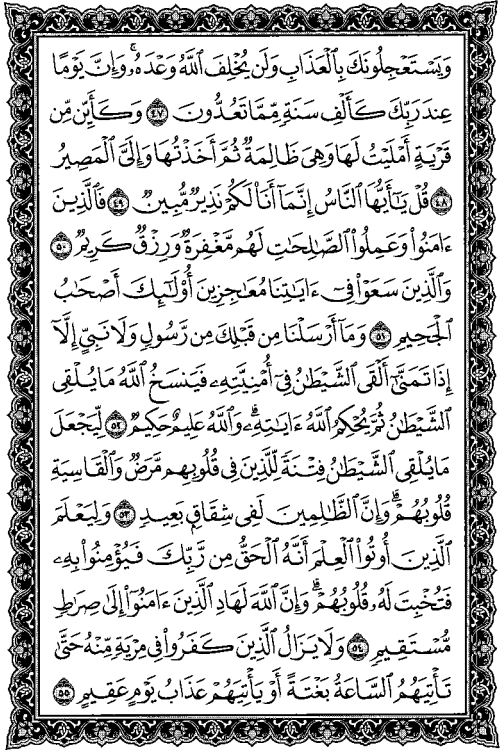 وَيَسْتَعْجِلُونَكَ بِٱلْعَذَابِ وَلَن يُخْلِفَ ٱللَّهُ وَعْدَهُۥۚ وَإِنَّ يَوْمًا
عِندَ رَبِّكَ كَأَلْفِ سَنَةٍ مِّمَّا تَعُدُّونَ ٤٧ وَكَأَيِّن مِّن
قَرْيَةٍ أَمْلَيْتُ لَهَا وَهِىَ ظَالِمَةٌ ثُمَّ أَخَذْتُهَا وَإِلَىَّ ٱلْمَصِيرُ
٤٨ قُلْ يَـٰٓأَيُّهَا ٱلنَّاسُ إِنَّمَآ أَنَا۠ لَكُمْ نَذِيرٌ مُّبِينٌ ٤٩ فَٱلَّذِينَ
ءَامَنُوا۟ وَعَمِلُوا۟ ٱلصَّـٰلِحَـٰتِ لَهُم مَّغْفِرَةٌ وَرِزْقٌ كَرِيمٌ ٥٠
وَٱلَّذِينَ سَعَوْا۟ فِىٓ ءَايَـٰتِنَا مُعَـٰجِزِينَ أُو۟لَـٰٓئِكَ أَصْحَـٰبُ
ٱلْجَحِيمِ ٥١ وَمَآ أَرْسَلْنَا مِن قَبْلِكَ مِن رَّسُولٍ وَلَا نَبِىٍّ إِلَّآ
إِذَا تَمَنَّىٰٓ أَلْقَى ٱلشَّيْطَـٰنُ فِىٓ أُمْنِيَّتِهِۦ فَيَنسَخُ ٱللَّهُ مَا يُلْقِى
ٱلشَّيْطَـٰنُ ثُمَّ يُحْكِمُ ٱللَّهُ ءَايَـٰتِهِۦۗ وَٱللَّهُ عَلِيمٌ حَكِيمٌ ٥٢ لِّيَجْعَلَ
مَا يُلْقِى ٱلشَّيْطَـٰنُ فِتْنَةً لِّلَّذِينَ فِى قُلُوبِهِم مَّرَضٌ وَٱلْقَاسِيَةِ
قُلُوبُهُمْۗ وَإِنَّ ٱلظَّـٰلِمِينَ لَفِى شِقَاقٍۭ بَعِيدٍ ٥٣ وَلِيَعْلَمَ
ٱلَّذِينَ أُوتُوا۟ ٱلْعِلْمَ أَنَّهُ ٱلْحَقُّ مِن رَّبِّكَ فَيُؤْمِنُوا۟ بِهِۦ
فَتُخْبِتَ لَهُۥ قُلُوبُهُمْۗ وَإِنَّ ٱللَّهَ لَهَادِ ٱلَّذِينَ ءَامَنُوٓا۟ إِلَىٰ صِرَٰطٍ
مُّسْتَقِيمٍ ٥٤ وَلَا يَزَالُ ٱلَّذِينَ كَفَرُوا۟ فِى مِرْيَةٍ مِّنْهُ حَتَّىٰ
تَأْتِيَهُمُ ٱلسَّاعَةُ بَغْتَةً أَوْ يَأْتِيَهُمْ عَذَابُ يَوْمٍ عَقِيمٍ ٥٥